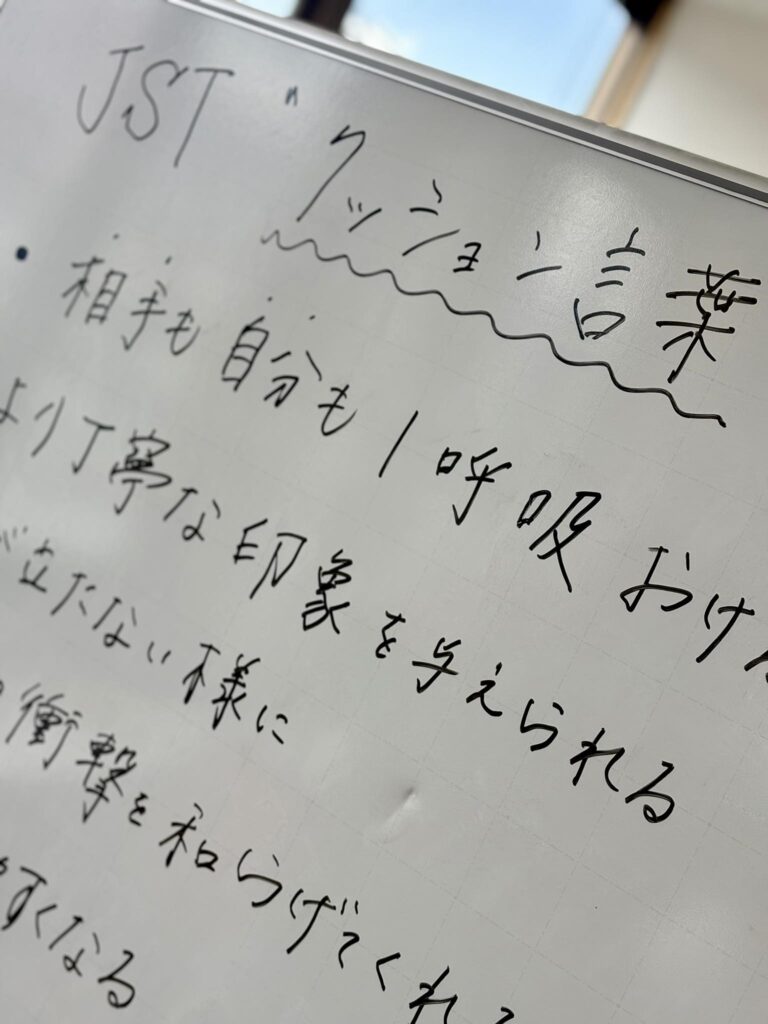 JST "クッション言葉
・相手も自分も1呼吸おける
より丁寧な印象を与えられる
が立たない様に
衝撃を和らげてくれる
やすくなる